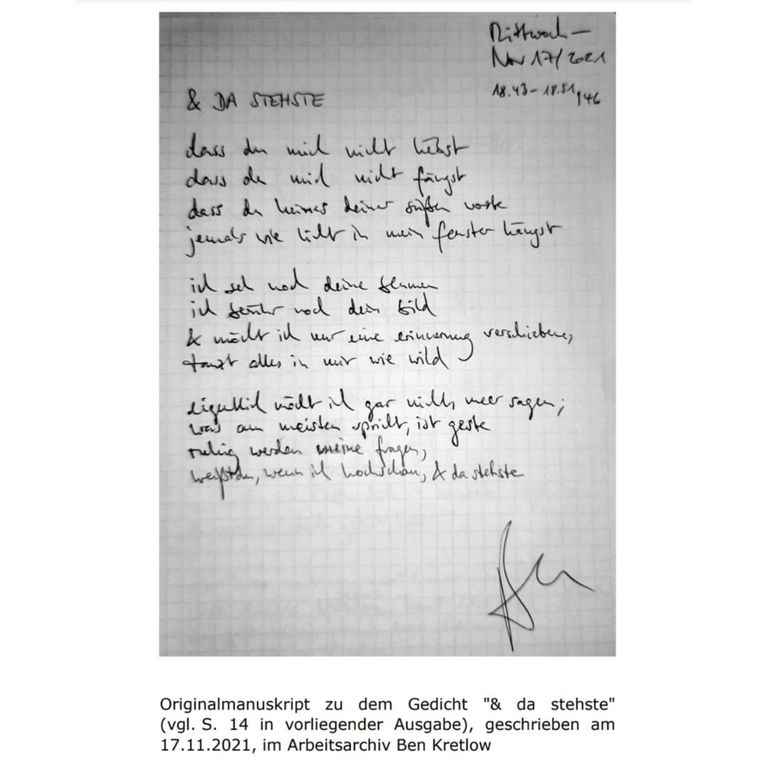 Mittwoch —
Nov 17/2021
18.43 – 18.51
& DA STEHSTE
dass du mich nicht liebst
dass du mich nicht fängst
dass du keines deiner süßen worte
jemals wie licht in mein fenster hängst
ich seh noch deine
ich noch dein bild
& möcht ich nur eine erinnerung verschieben,
tanzt alles in mir wie wild
eigentlich möcht ich gar nichts meer sagen;
was am meisten spricht, ist geste
ruhig werden meine fragen,
weißtdu, wenn ich hochschau, & da stehste
Originalmanuskript zu dem Gedicht "& da stehste"
(vgl. S. 14 in vorliegender Ausgabe), geschrieben am
17.11.2021, im Arbeitsarchiv Ben Kretlow